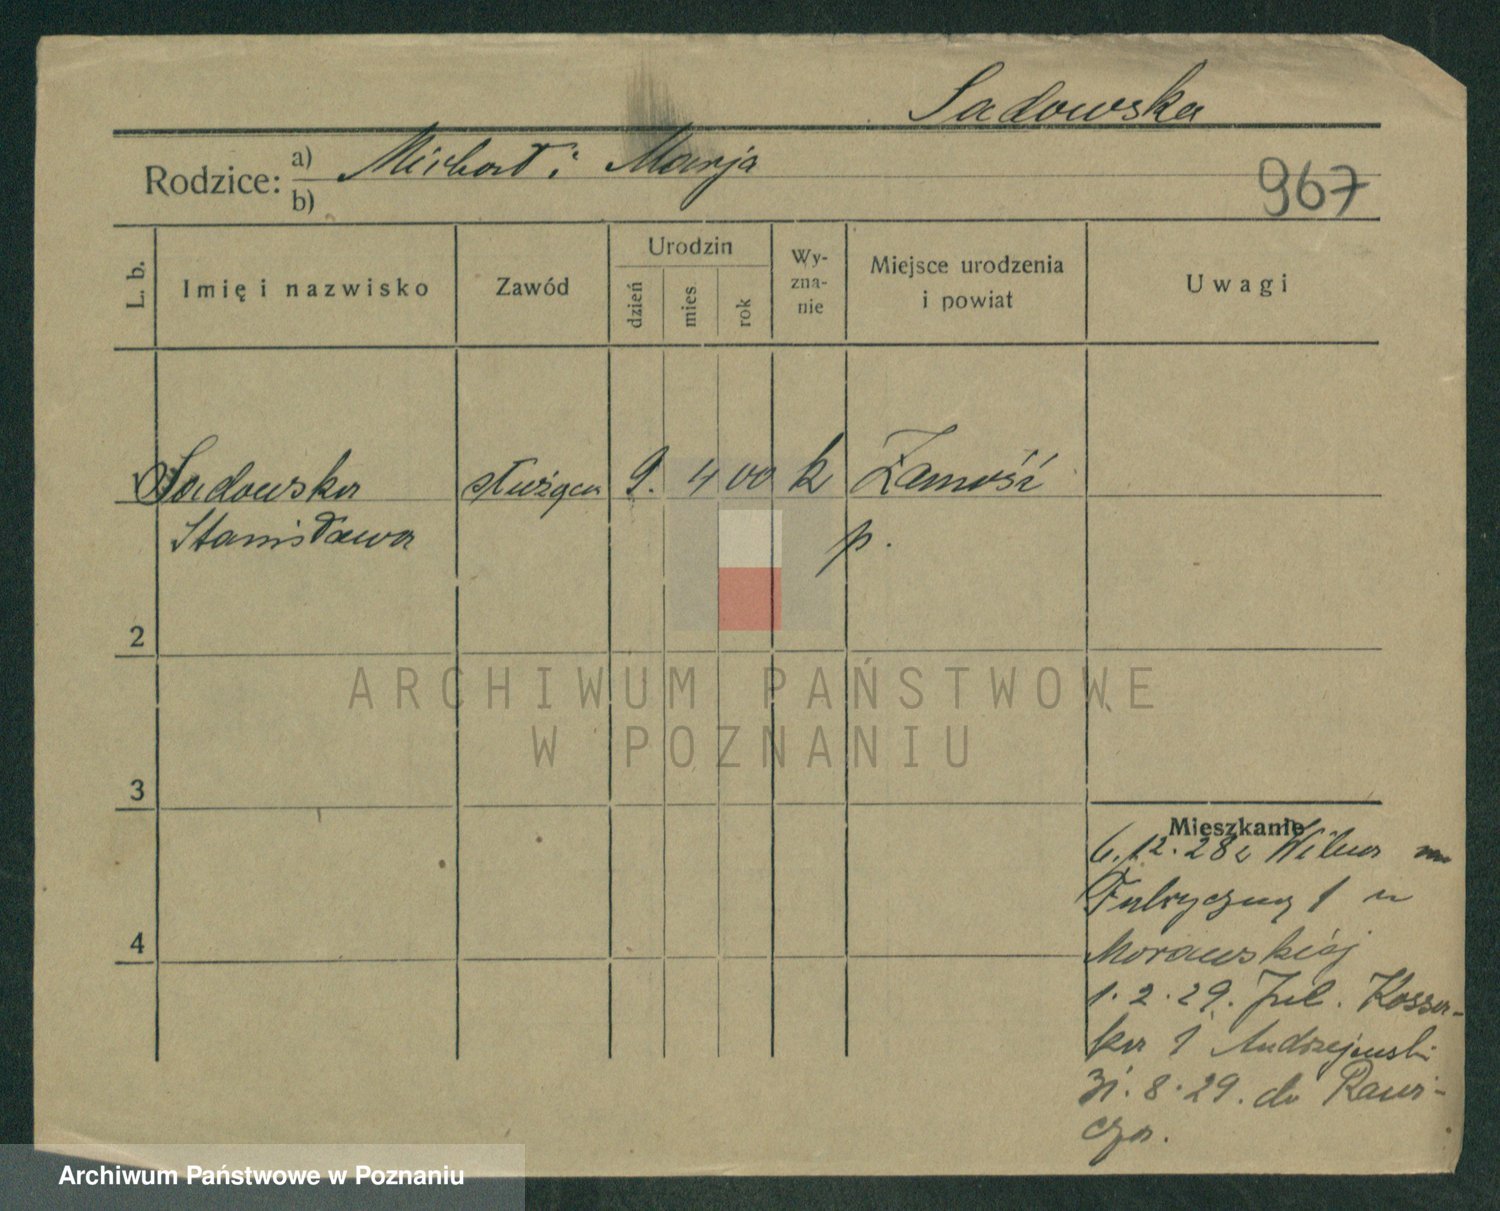 Sadowska
Rodzice: a) Michał i Marja
b)
967
L. b.
Imię i nazwisko
Zawód
Urodzin
dzień
mies
rok
Wy-
zna-
nie
Miejsce urodzenia
i powiat
Uwagi
1 Sadowska służąca 9. 4 00 k Zamość
Stanisława p.
2
3
4
Mieszkanie
6.12.28 z
Fabryczny 1 u
Morawskiej
1.2.29. Jul. Kossa-
ka 1 Andrzejewski
31.8.29. do Rawi-
cza.
ARCHIWUM PAŃSTWOWE
W POZNANIU
Archiwum Państwowe w Poznaniu